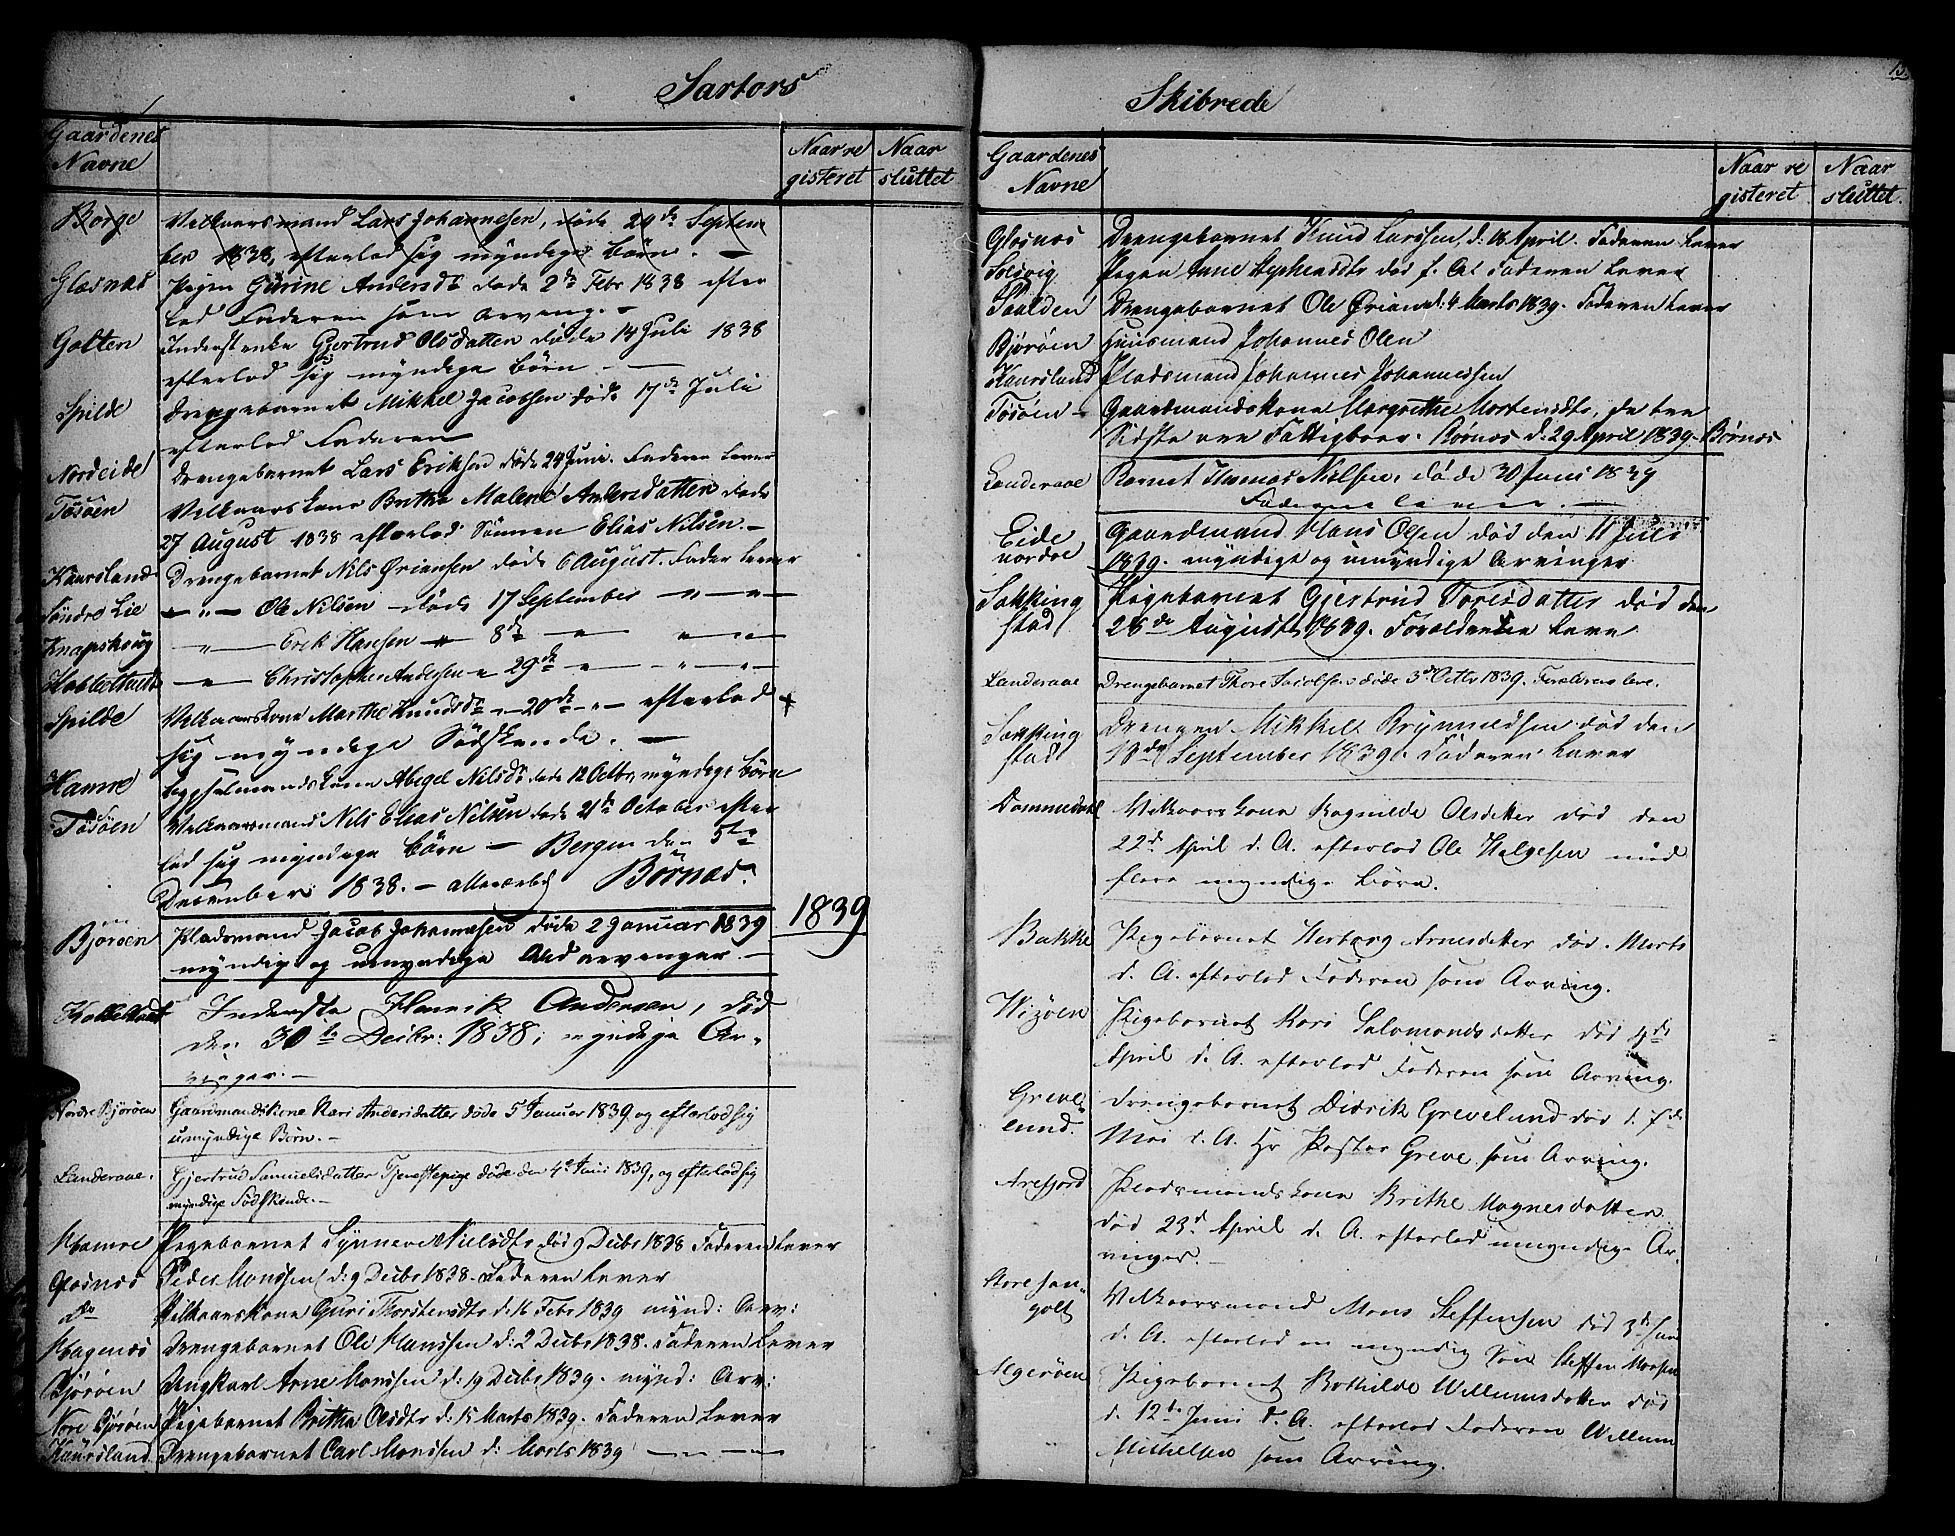 Sartors
Gaardenes
Navne
Naar re
gisteret
Naar
sluttet
Borge
Velkaarsmand Lars Johannesen, døde 24de Septem
ber 1838, efterlod sig myndige Børn. —
Glæsnæs
Pigen Gurine Andersdr døde 2de Febr 1838 efter
lod Faderen som Arving. —
Golten
Inderst enke Gjertrud Olsdatter døde 14 Juli 1838
efterlod sig myndige Børn. —
Spilde
Drengebarnet Mikkel Jacobsen døde 17de Juli
efterlod Faderen
Nordeide
Drengebarnet Lars Eriksen døde 24 Juni. Faderen Lever
Tøsøen
Velkaarskone Britha Malene Andersdatter døde
27 August 1838 efterlod Sønnen Elias Nilsen. —
Kaursland
Drengebarnet Nils Ørjansen døde 6 August. Fader Lever
Søndre Lie
— „ — Ole Nilsen — døde 17 September „ — „ —
Knapskoug
— „ — Erik Hansen „ 8de — „ — „ — „ —
— „ — Christopher Andersen „ 29de — „ — „ — „ —
Spilde
Velkaarskone Marthe Knudsdr — „ — 20de — „ — efterlod
sig myndige Södskende. —
Hamre
Abegel Nilsdr døde 12 Octbr, myndige Børn
Tøsøen
Velkaarsmand Nils Elias Nilsen døde 21de October efter
lod sig myndige Børn — Bergen den 5te
December 1838. — Børnæs.
1839
Bjørøen
Pladsmand Jacob Johannesen døde 2 Januar 1839
myndig og umyndige Arvenger. —
Koltveit
Inderste Henrik Andersen, død
den 30te Decbr: 1838; myndige Ar„
vinger. —
Nordre Bjørøen
Gaardmandskone Kari Andersdatter døde 5 Januar 1839 og efterlod sig
umyndige Børn. —
Landeraae.
Gjertrud Samuelsdatter Tjenestepige døde den 4de Juni 1839, og efterlod sig
myndige Sødskende. —
Hamre
Pigebarnet Synneve Nielsdtr død 9 Decbr 1838 Faderen Lever
Glæsnæs
Peder Monssen d: 9 Decbr 1838. Faderen Lever
do
Vilkaarskone Guri Thorstensdtr d: 16 Febr 1839 mynd: Arv:
Hagenæs
Drengebarnet Ole Hanssen d: 2 Decbr 1838. Faderen Lever
Bjørøen
Ungkarl Arne Monssen d: 19 Decbr 1839. mynd: Arv:
Nore Bjørøen
Pigebarnet Britha Olsdtr d: 15 Marts 1839. Faderen Lever
Kaursland
Drengebarnet Carl Monssen d: Marts 1839 — „ — „ —
Skibrede
Gaardenes
Navne
Naar re
gisteret
Naar
sluttet.
Glæsnæs
Drengebarnet Knud Larssen, d: 18 April. Faderen Lever
Solsvig
Pigen Anne Stephensdtr død f. A. Faderen Lever
Drengebarnet Ole Ørians d: 4 Marts 1839. Faderen Lever
Bjørøen
Huusmand Johannes Olsen
Kaursland
Pladsmand Johannes Johannessen
Tøsøen —
Gaardmandskone Margrethe Mortensdtr, de tre
Sidste ere Fattigboer. Børnæs d: 29 April 1839. Børnæs
Landeraae
Barnet Thomas Nilsen, døde 30 Juni 1839
Faderne lever. —
Eide
nordre
Gaardmand Hans Olsen død den 11 Juli
1839. myndige og umyndige Arvinger
Sækking
stad
Pigebarnet Gjertrud Torisdatter død den
28de August 1839. Forældrene Leve
Landeraae
Drengebarnet Thore Jacobsen døde 3de Octbr 1839. Forældrene leve.
Sækking
stad
Drengen Mikkel Brynnildsen død den
10de September 1839. Faderen Lever
Dommedal
Velkaars kone Ragnilde Olsdatter død den
22de April d. A. efterlod Ole Helgesen med
flere myndige Børn.
Bakke
Pigebarnet Herborg Arnesdatter død Marts
d. A. efterlod Faderen som Arving.
Wizøen
Pigebarnet Kari Salomonsdatter død 4de
April d. A. efterlod Faderen som Arving.
Greve„
lund.
Drengebarnet Didrik Grevelund død d. f
Mai d. A. Hr Pastor Greve som Arving.
Arefjord
Pladsmands kone Brithe Magnesdatter
død 23d April d. A. efterlod umyndige Ar„
vinger. —
Store san„
golt
Velkaarsmand Mons Steffensen død 3de Juni
d. A. efterlod en myndig Søn Steffen Monsen
Algerøen
Pigebarnet Bothilde Willumsdatter død
d. 12te Juni d. A. efterlod Faderen Willum
Mikkelsen som Arving.